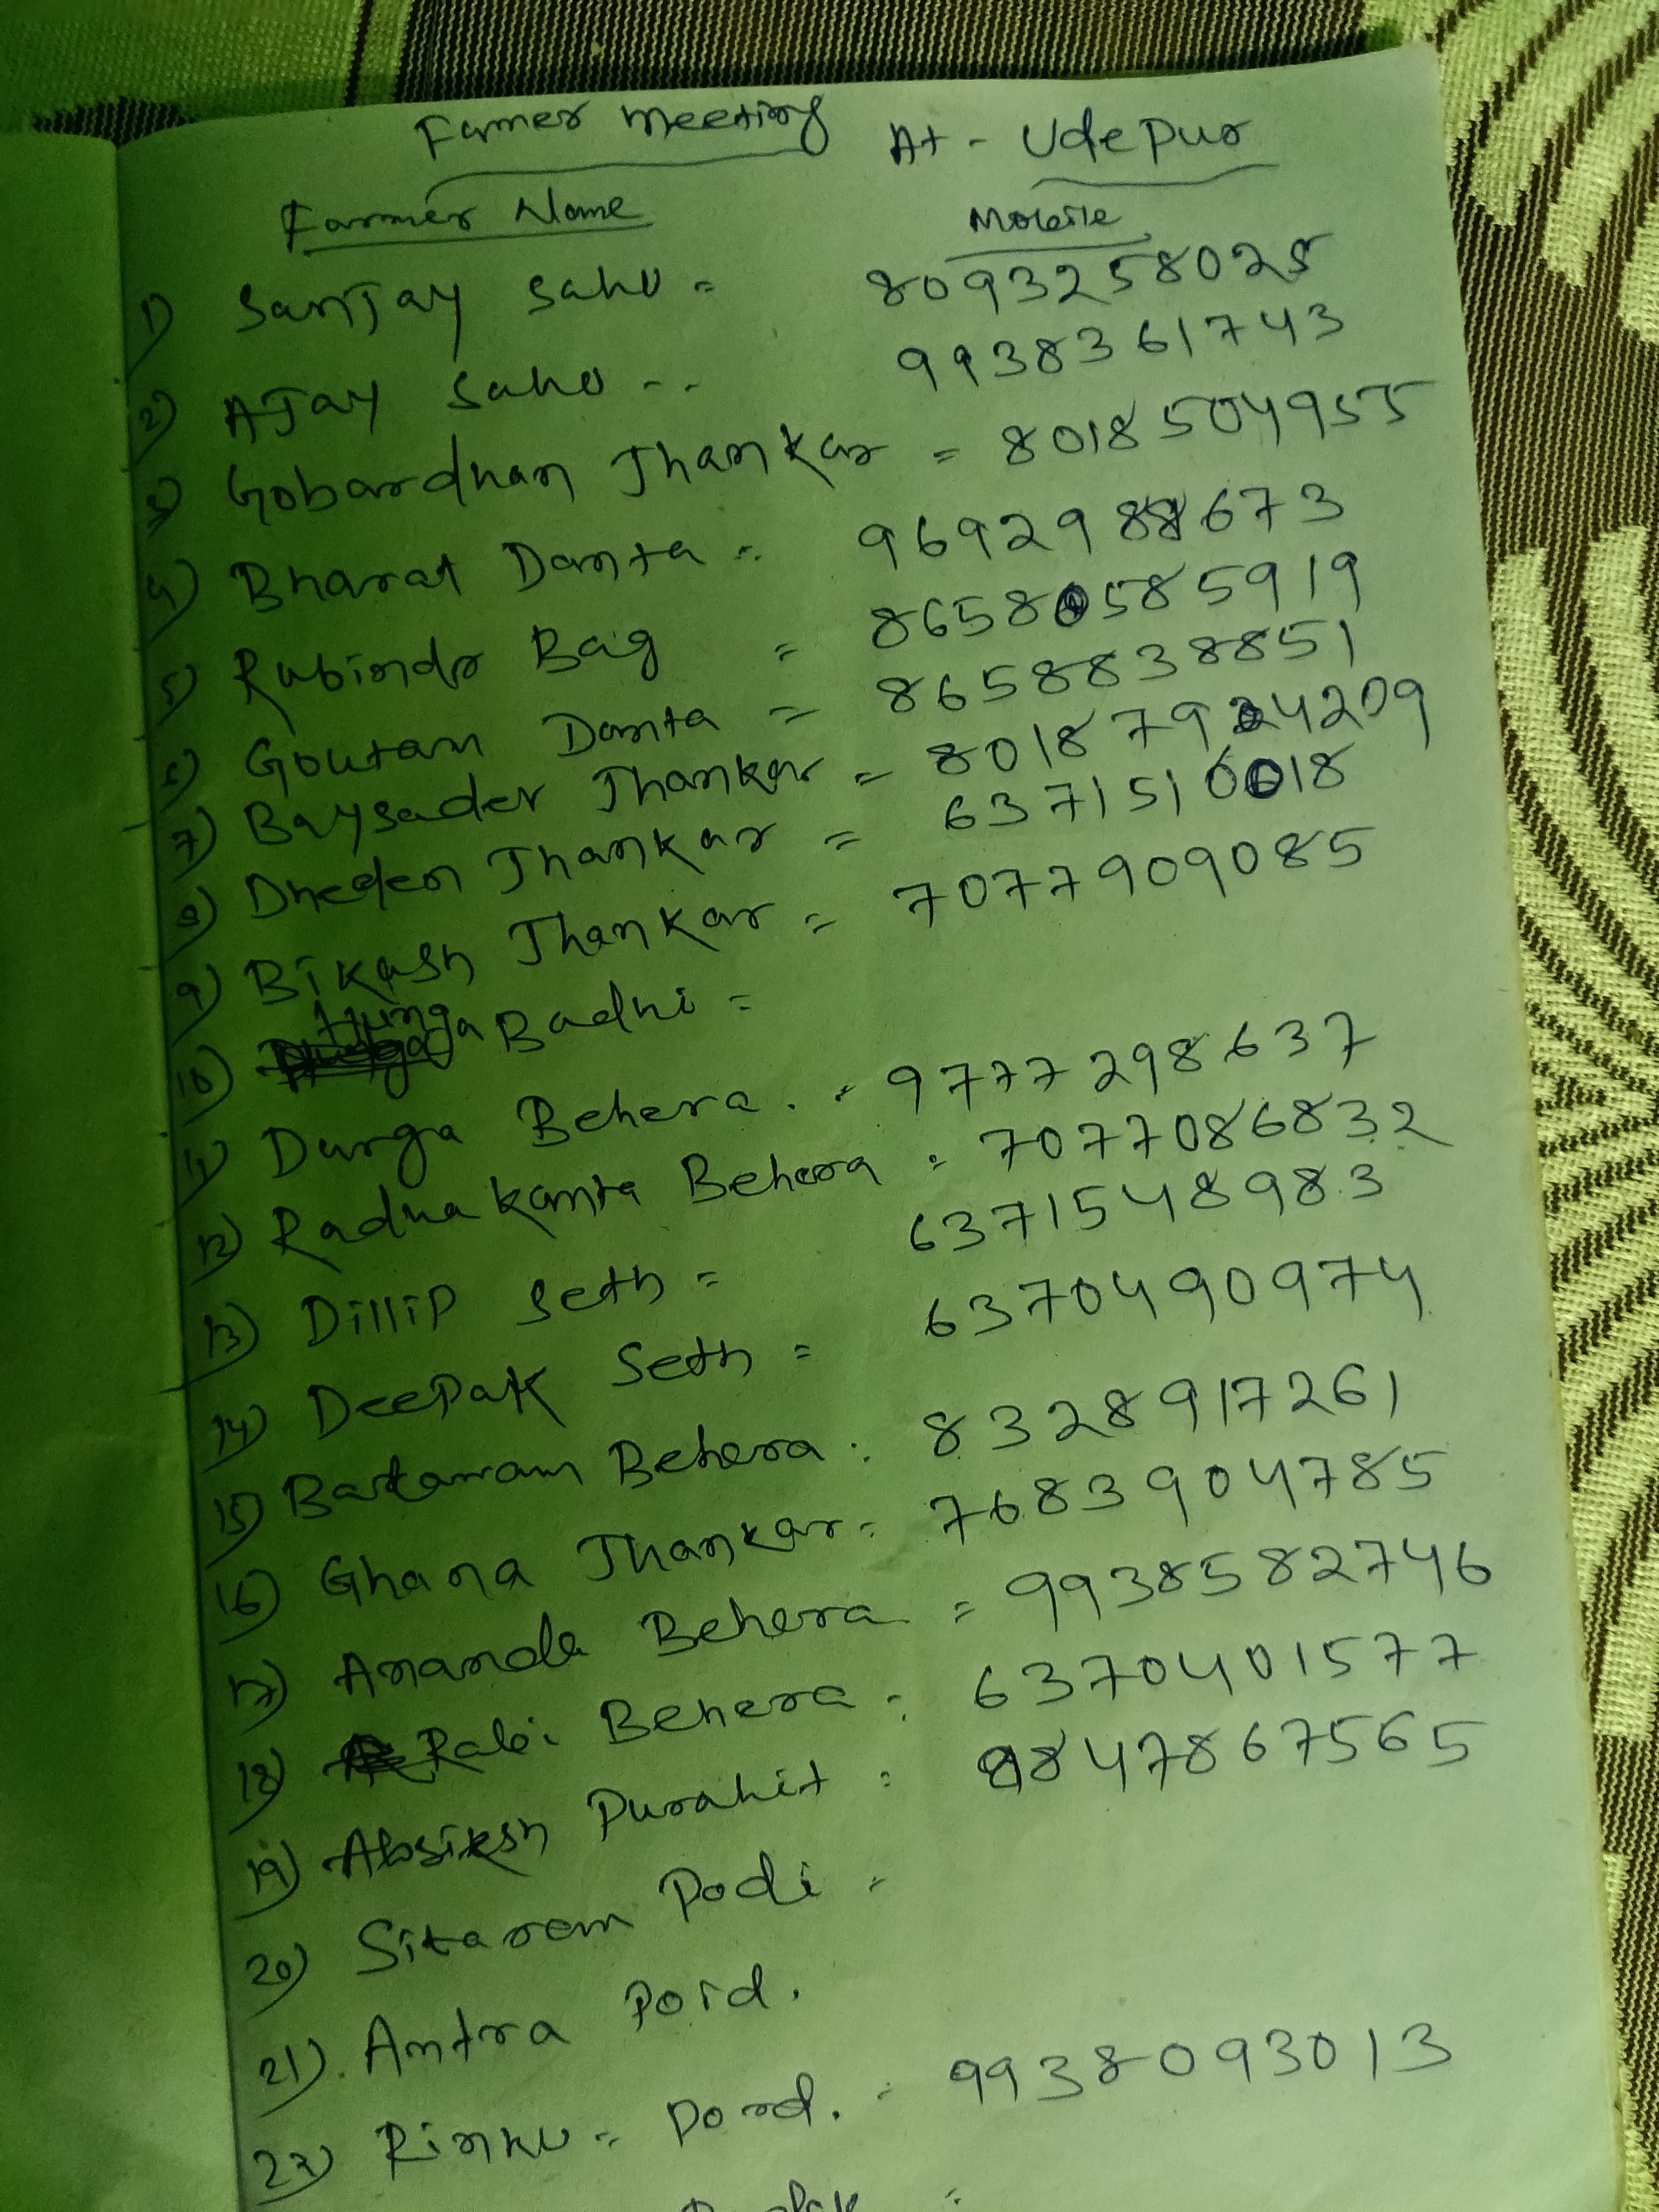 Farmer meeting At - Udepur
Farmer Name Mobile
1) Sanjay Sahu = 8093258025
2) AJay Sahu -- 9938361743
3) Gobardhan Jhankar = 8018504955
4) Bharat Danta = 9692988673
5) Rubindr Bag = 86580585919
6) Goutam Danta = 8658838851
7) Baysader Jhankar = 8018794209
8) Dhegen Jhankar = 6371510018
9) Bikash Jhankar = 7077909085
10) Badhi =
11) Durga Behera . = 9777298637
12) Radhakanta Behera = 7077086832
13) Dillip Seth = 6371548983
14) DeePak Seth = 6370490974
15) Behera : 8328917261
16) Ghana Jhankar = 7683904785
17) Ananda Behera = 9938582746
18) Rabi Behera = 6370401577
19) Purahit : 9847867565
20) Sitaram Podi =
21). Antra Pord.
22) Rinku = Pord. = 9938093013